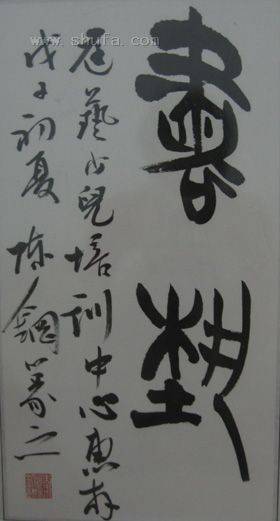 書埶
藝少兒培训中心惠存
戊子初夏 陈鋼篆之
www.shufa.com